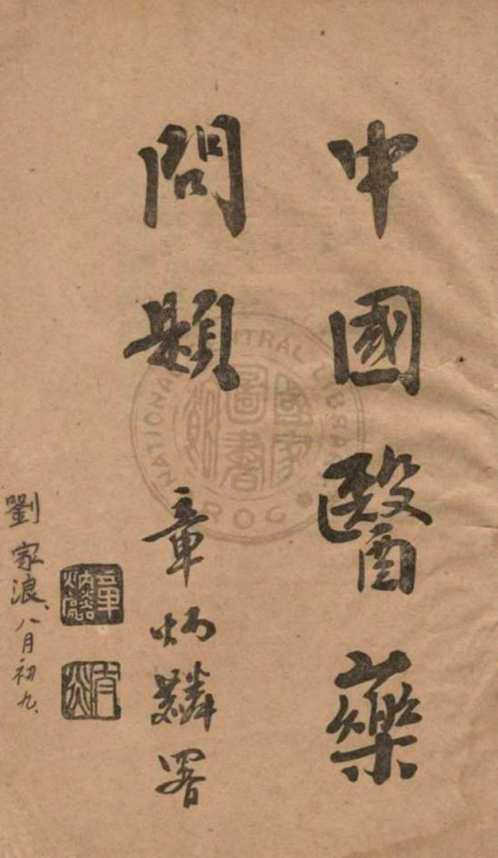 中國醫藥
問題 章炳麟署
章炳麟
太炎
劉家浪、八月初九、
NATIONAL CENTRAL LIBRARY
ROC
國家圖書館